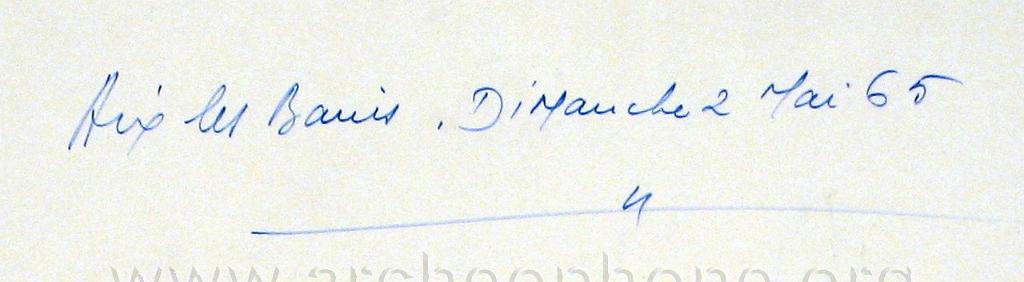 Aix les Bains. Dimanche 2 Mai 65
"
www.archeophone.org